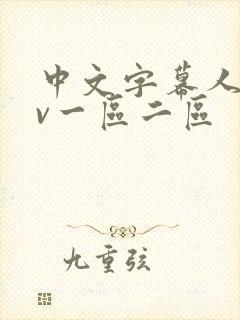 中文字幕人
v一區二區
九重弦